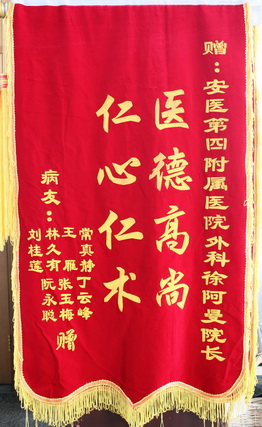 赠：安医第四附属医院外科徐阿曼院长
医德高尚
仁心仁术
病友：
常真静丁云峰
王雁张玉梅
林久有阮永聪
刘桂莲
赠